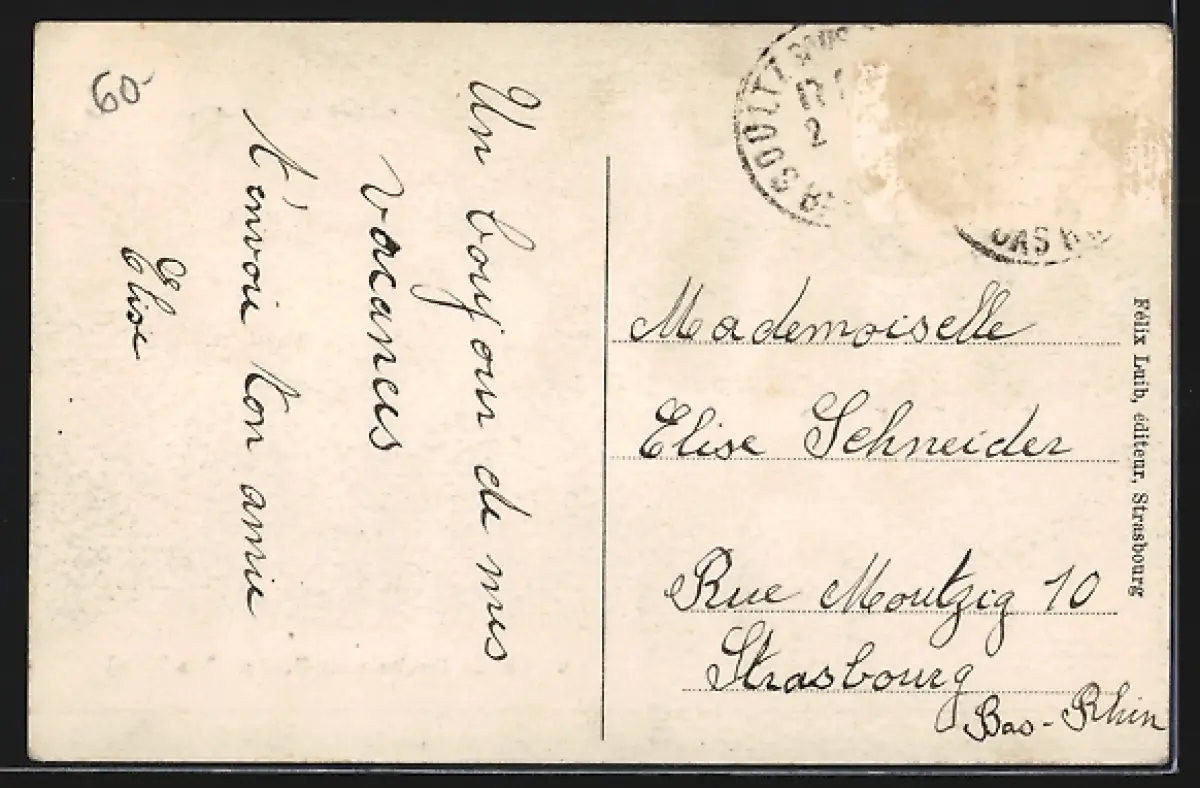 60
Un boujour de mes
vacances
t'envoie ton amie
Elise
SOULTZ SOUS
2
BAS R
Mademoiselle
Elise Schneider
Rue Moutzig 10
Strasbourg
Bas-Rhin
Félix Luib, éditeur, Strasbourg